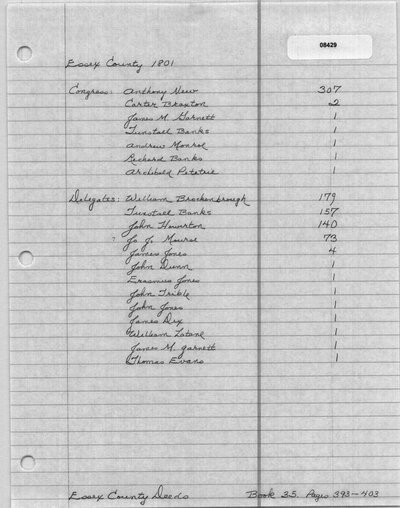 08429
Essex County 1801
Congress: Anthony New 307
Carter Braxton 2
James M. Garnett 1
Tunstall Banks 1
Andrew Monroe 1
Richard Banks 1
Archibald 1
Delegates: William Brockenbrough 179
Tunstall Banks 157
John Howerton 140
? Jo. J. Monroe 73
James Jones 4
John Dunn 1
Erasmus Jones 1
John Trible 1
John Jones 1
James Dix 1
William Latane 1
James M. Garnett 1
Thomas Evans 1
Essex County Deeds Book 35. Pages 393-403